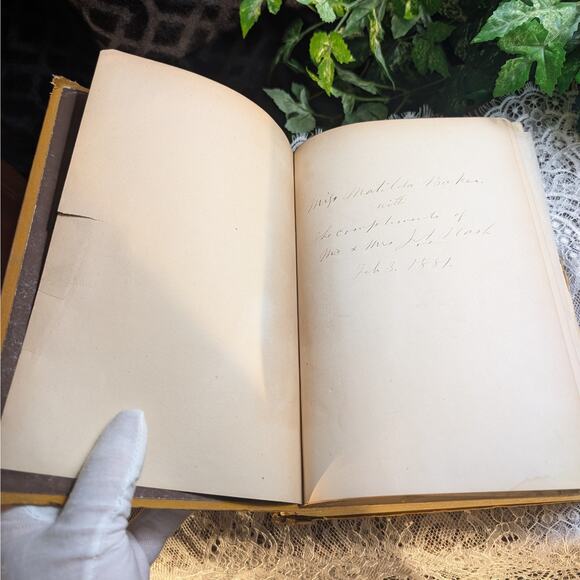 Miss Matilda Barker.
with
The compliments of
Mr & Mrs John Nash
Feb 3. 1881.